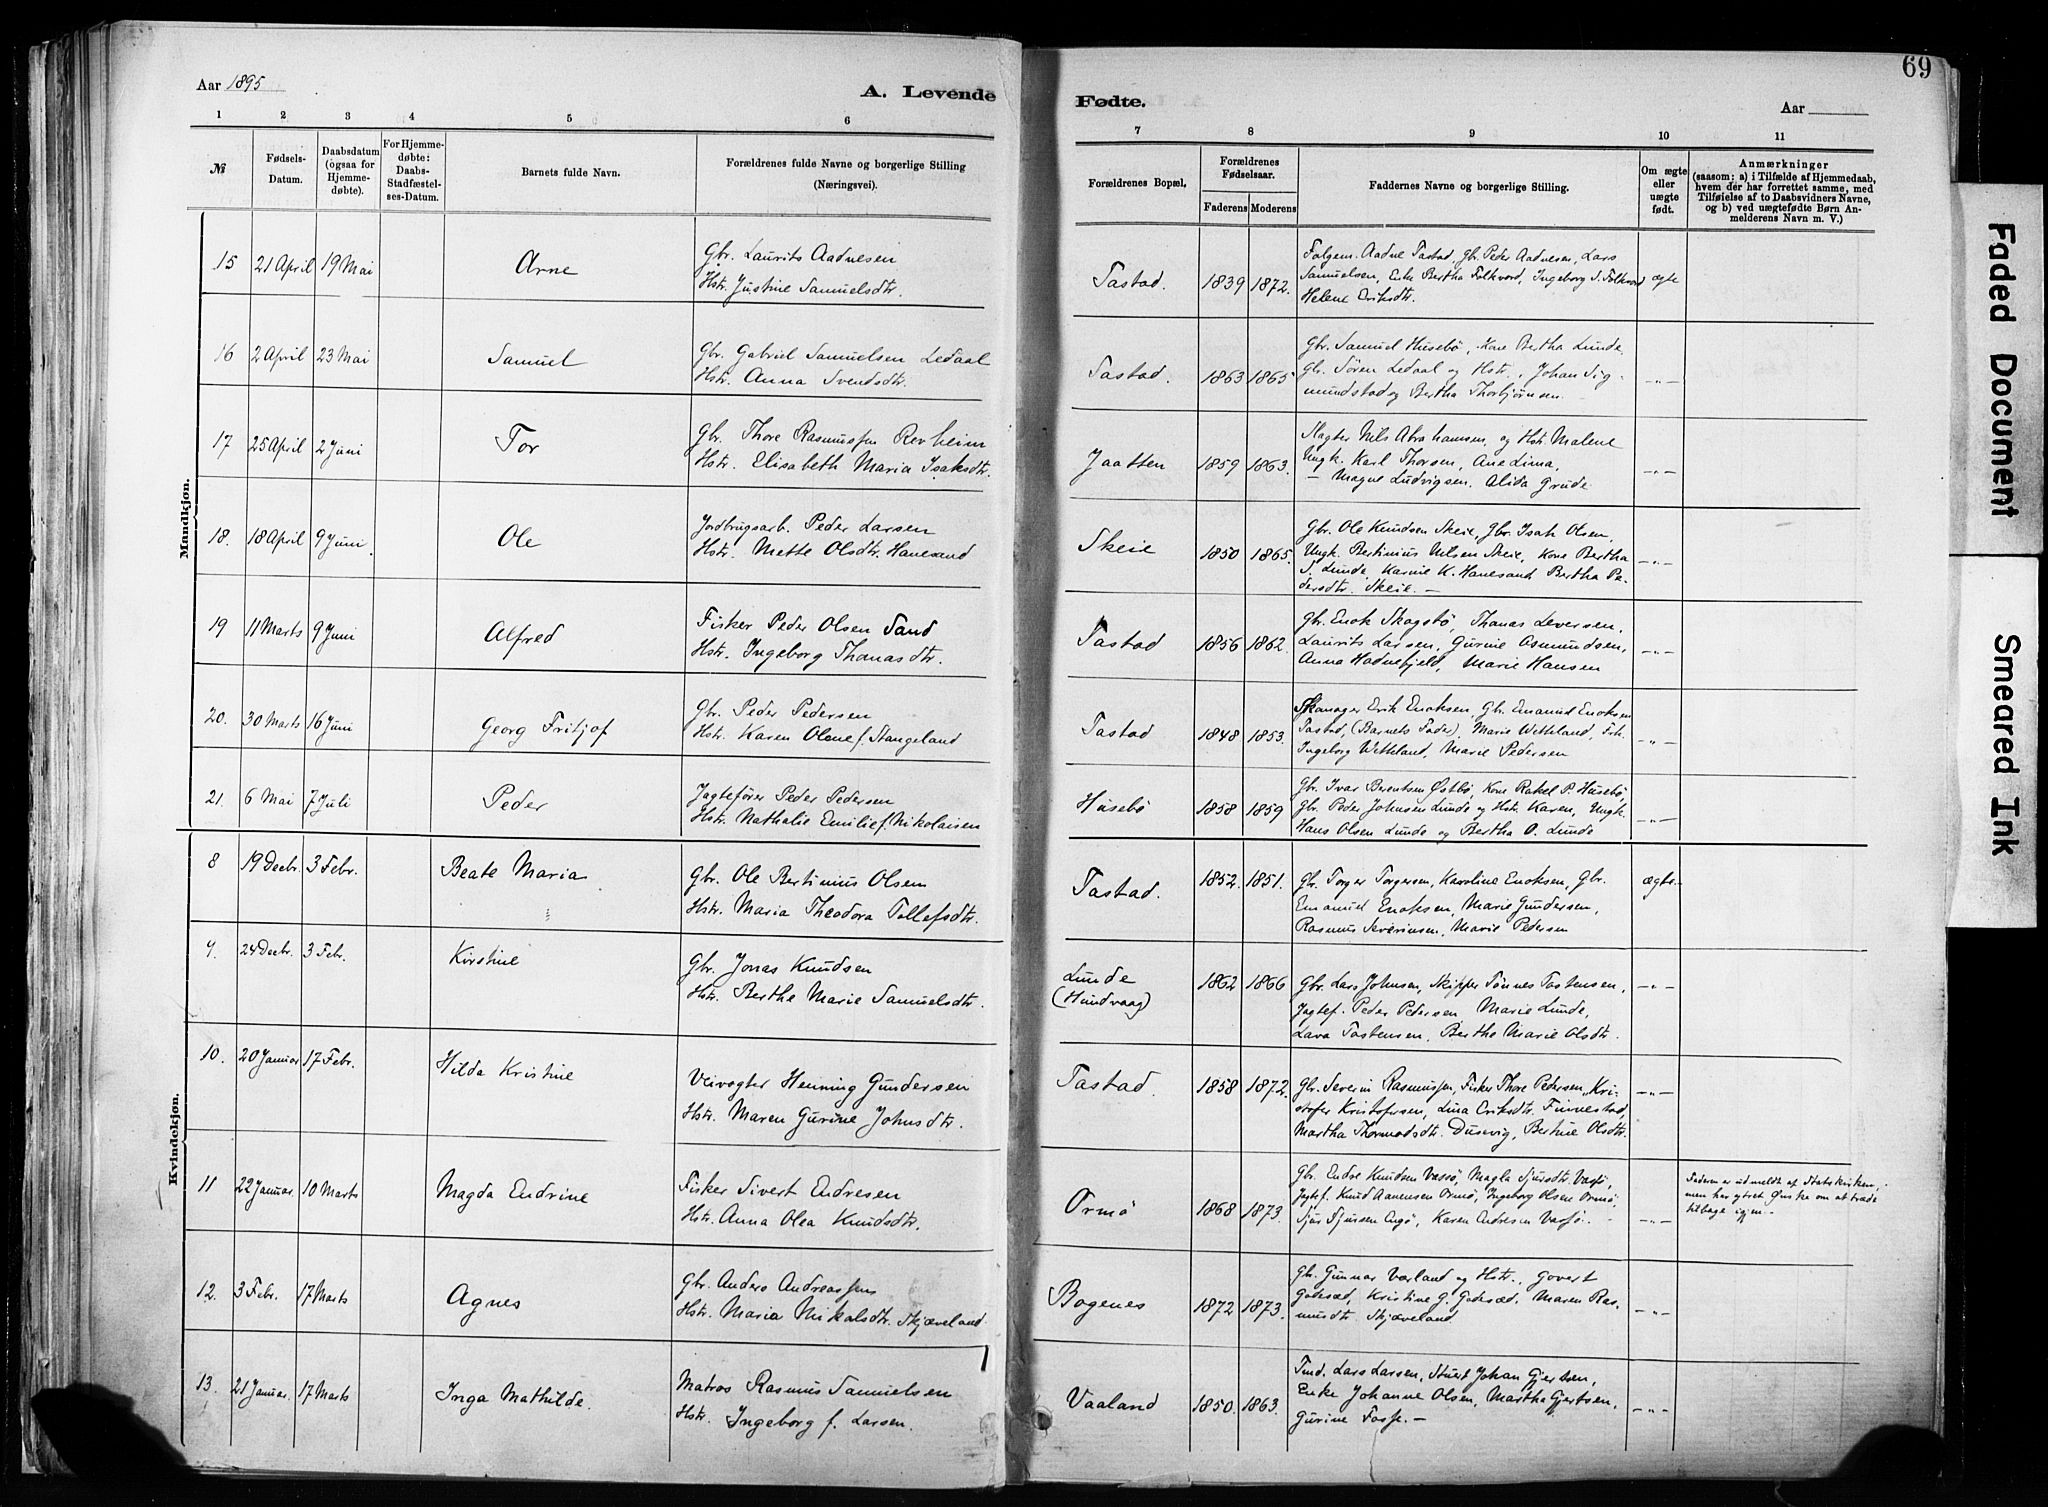 69
Aar 1895
A. Levende
Fødte.
Aar
1 2 3 4 5 6
7 8 9 10 11
№
Fødsels-
Datum.
Daabsdatum
(ogsaa for
Hjemme-
døbte).
For Hjemme-
døbte:
Daabs-
Stadfæstel-
ses-Datum.
Barnets fulde Navn.
Forældrenes fulde Navne og borgerlige Stilling
(Næringsvei).
Forældrenes Bopæl.
Forældrenes
Fødselsaar.
Faderens
Moderens
Faddernes Navne og borgerlige Stilling.
Om ægte
eller
uægte
født.
Anmærkninger
(saasom: a) i Tilfælde af Hjemmedaab,
hvem der har forrettet samme, med
Tilføielse af to Daabsvidners Navne,
og b) ved uægtefødte Børn An-
melderens Navn m. V.)
Mandkjøn.
15 21 April 19 Mai Arne
Gbr. Laurits Aadnesen
Hstr. Justine Samuelsdtr.
Tastad. 1839 1872.
Folgem. Aadne Tastad, Gbr. Peder Aadnesen, Lars
Samuelsen, Enke Bertha Folkvord, Ingeborg S. Folkvord
Helene Eriksdtr.
ægte
16 2 April 23 Mai Samuel
Gbr. Gabriel Samuelsen Ledaal
Hstr. Anna Svendsdtr.
Tastad. 1863 1865
Gbr. Samuel Husebø, Kone Bertha Lunde,
Gbr. Sören Ledaal og Hstr., Johan Sig-
mundstad og Bertha Thorbjørnsen.
—„—
17 25 April 2 Juni Tor
Gbr. Thore Rasmussen Revheim
Hstr. Elisabeth Maria Isaksdtr.
Jaatten 1859 1863.
Slagter Nils Abrahamsen, og Hstr Malene
Ungk. Karl Thorsen, Ane Lima,
— Magne Ludvigsen, Alida Grude
—„—
18. 18 April 9 Juni. Ole
Jordbrugsarb. Peder Larsen
Hstr. Mette Olsdtr. Hanesand
Skeie 1850 1865.
Gbr. Ole Knudsen Skeie, Gbr. Isak Olsen,
Ungk. Bertinius Nilsen Skeie, Kone Bertha
S. Lunde, Karine K. Hanesand Bertha Pe-
dersdtr. Skeie. —
—„—
19 11 Marts 9 Juni Alfred
Fisker Peder Olsen Sand
Hstr. Ingeborg Thomasdtr.
Tastad 1856 1862.
Gbr. Enok Skagsbø, Thomas Leversen,
Laurits Larsen, Gurine Osmundsen,
Anna Hadnefjeld, Marie Hansen
—„—
20. 30 Marts 16 Juni Georg Fritjof
Gbr. Peder Pedersen
Hstr. Karen Olene f. Stangeland
Tastad 1848 1853.
Skomager Erik Enoksen, Gbr. Emanuel Enoksen
Tastad, (Barnets Fader), Marie Wetteland, Frk.
Ingeborg Wetteland, Marie Pedersen
—„—
21. 6 Mai 7 Juli Peder
Jagtefører Peder Pedersen
Hstr. Nathalie Emilie f. Nikolaisen
Husebø 1858 1859
Gbr. Ivar Berentsen Østbø, Kone Rakel P. Husebø
Gbr. Peder Johnsen Lunde og Hstr. Karen, Ungk.
Hans Olsen Lunde og Bertha O. Lunde
—„—
Kvindekjøn.
8 19 Decbr. 3 Febr. Beate Maria
Gbr. Ole Bertinius Olsen
Hstr. Maria Theodora Tollefsdtr.
Tastad. 1852. 1851.
Gbr. Torger Torgersen, Karoline Enoksen, Gbr.
Emanuel Enoksen, Marie Gundersen,
Rasmus Severinsen, Marie Pedersen
ægte
9. 24 Decbr. 3 Febr. Kirstine
Gbr. Jonas Knudsen
Hstr. Berthe Marie Samuelsdtr.
Lunde
(Hundvaag)
1862 1866
Gbr. Lars Johnsen, Skipper Tönnes Tostensen,
Jagtef. Peder Pedersen Marie Lunde,
Lava Tostensen, Berthe Marie Olsdtr.
—„—
10. 20 Januar 17 Febr. Hilda Kristine
Veivogter Henning Gundersen
Hstr. Maren Gurine Johnsdtr.
Tastad. 1858 1872.
Gbr. Severin Rasmussen, Fisker Thore Pedersen, Kri-
stofer Kristofersen, Lina Eriksdtr. Finnestad,
Martha Thormodsdtr. Dusevig, Bertine Olsdtr.
—„—
11 22 Januar. 10 Marts Magda Endrine
Fisker Sivert Endresen
Hstr. Anna Olea Knudsdtr.
Ormø 1868 1873.
Gbr. Endre Knudsen Vassø, Magla Sjursdtr Vassø,
Jagtef. Knud Aanensen Ormø, Ingeborg Olsen Ormø,
Sjur Sjursen Engø, Karen Andresen Vassø. —
—„—
Faderen er udmeldt af Statskirken,
men har ytret Ønske om at træde
tilbage igjen.
12. 3 Febr. 17 Marts Agnes
Gbr. Anders Andreassen
Hstr. Maria Nikolsdtr. Skjæveland
Bogenes 1872 1873.
Gbr. Gunnar Varland og Hstr., Govert
Godesæd, Kristine G. Godesæd, Maren Ras-
musdtr. Skjæveland
—„—
13. 21 Januar. 17 Marts Inga Mathilde.
Matros Rasmus Samuelsen
Hstr. Ingeborg f. Larsen.
Vaaland 1850. 1863.
Tmd. Lars Larsen, Stuert Johan Gjertsen,
Enke Johanne Olsen, Martha Gjertsen,
Gurine Fosse. —
—„—
Faded Document
Smeared Ink